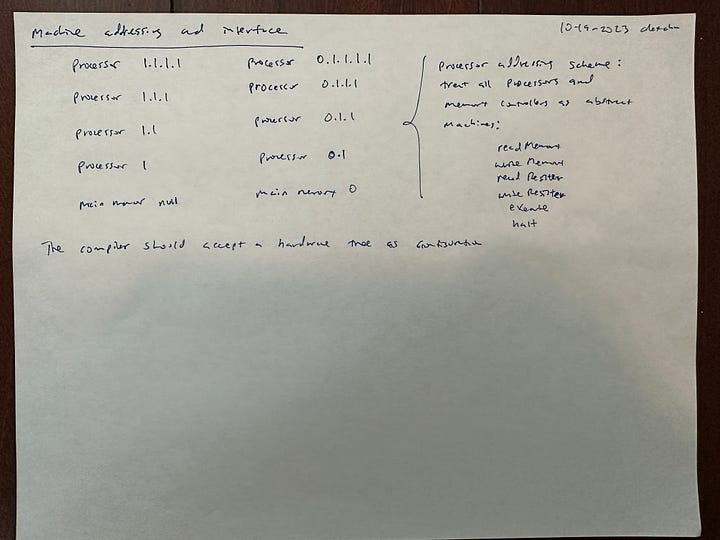 Machine addressing and interface
10-19-2023
Processor 1.1.1.1
Processor 1.1.1
Processor 1.1
Processor 1
Main memory null
Processor 0.1.1.1.1
Processor 0.1.1.1
Processor 0.1.1
Processor 0.1
Main memory 0
Processor addressing scheme:
treat all processors and
memory controllers as abstract
machines:
read Memory
write Memory
read Register
write Register
execute
halt
The compiler should accept a hardware tree as configuration